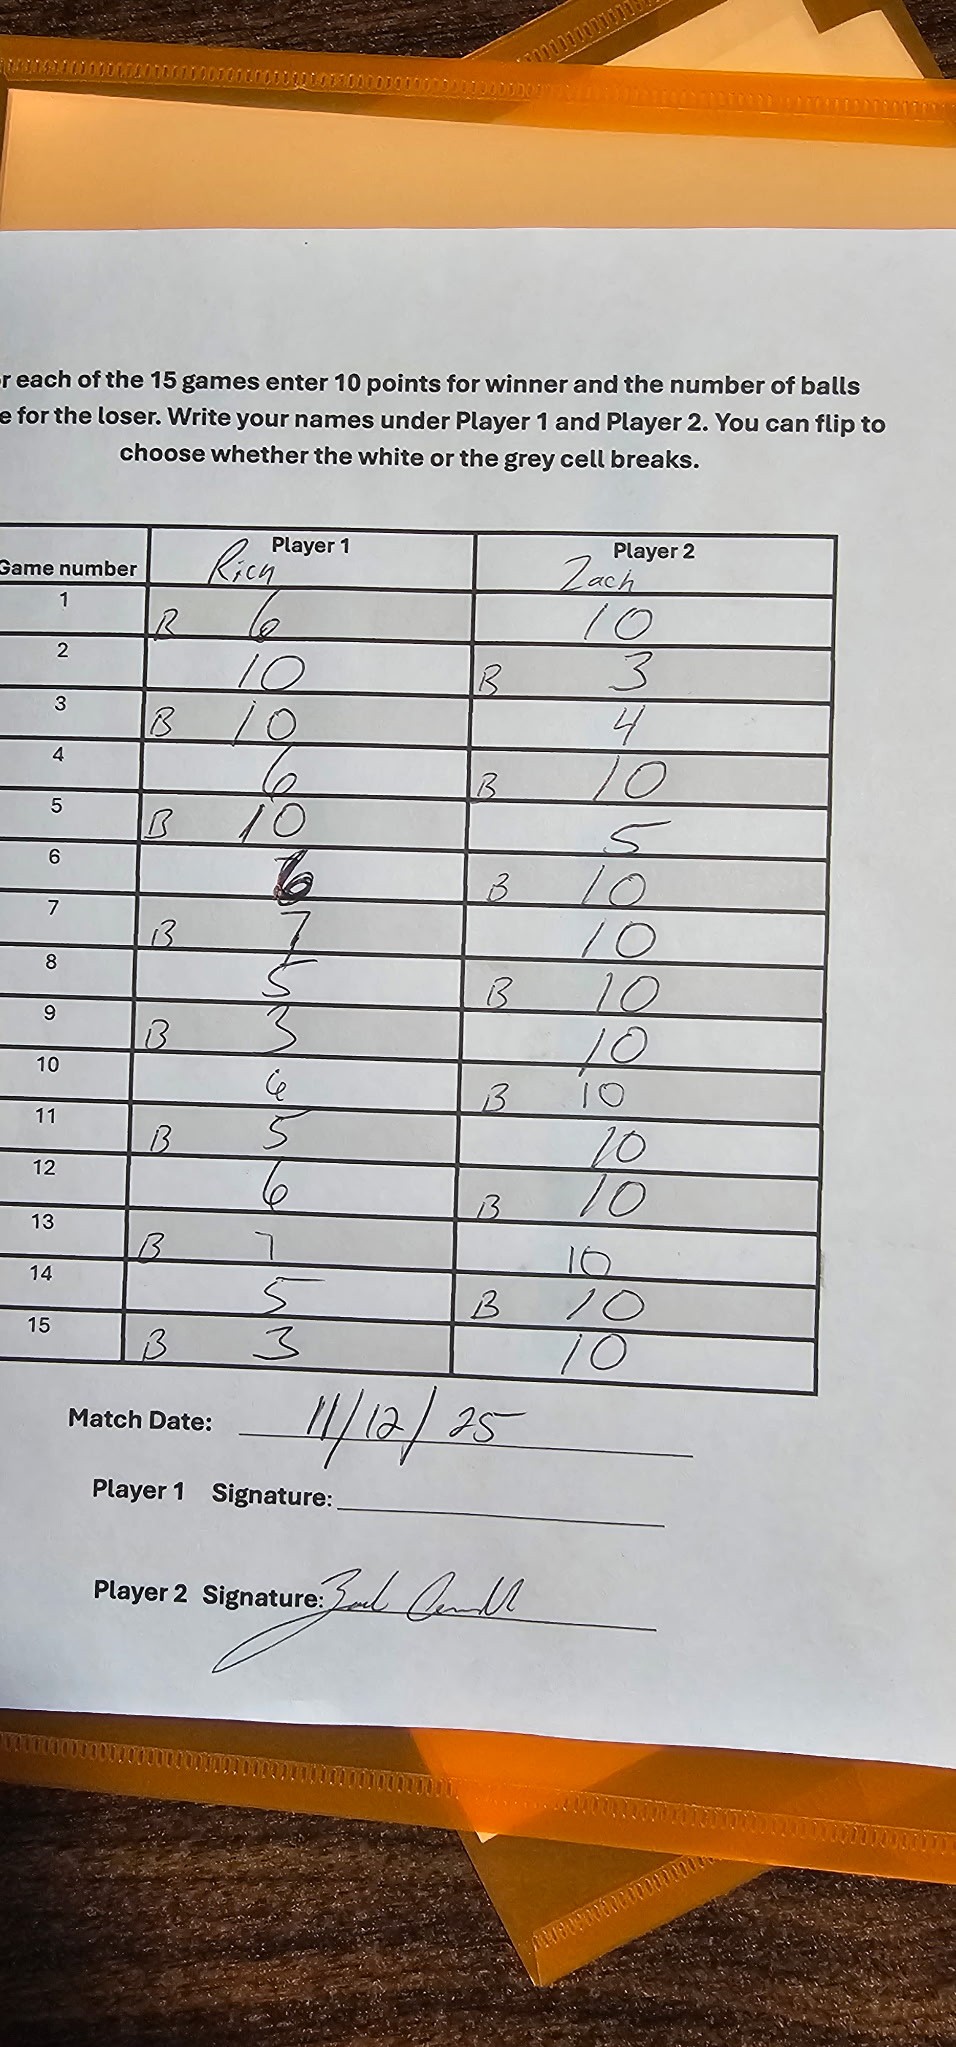 r each of the 15 games enter 10 points for winner and the number of balls
e for the loser. Write your names under Player 1 and Player 2. You can flip to
choose whether the white or the grey cell breaks.
Game number Player 1 Player 2
Rich Zach
1 B 6 10
2 10 B 3
3 B 10 4
4 6 B 10
5 B 10 5
6 6 B 10
7 B 7 10
8 5 B 10
9 B 3 10
10 6 B 10
11 B 5 10
12 6 B 10
13 B 7 10
14 5 B 10
15 B 3 10
Match Date: 11/12/25
Player 1 Signature:
Player 2 Signature: Zach